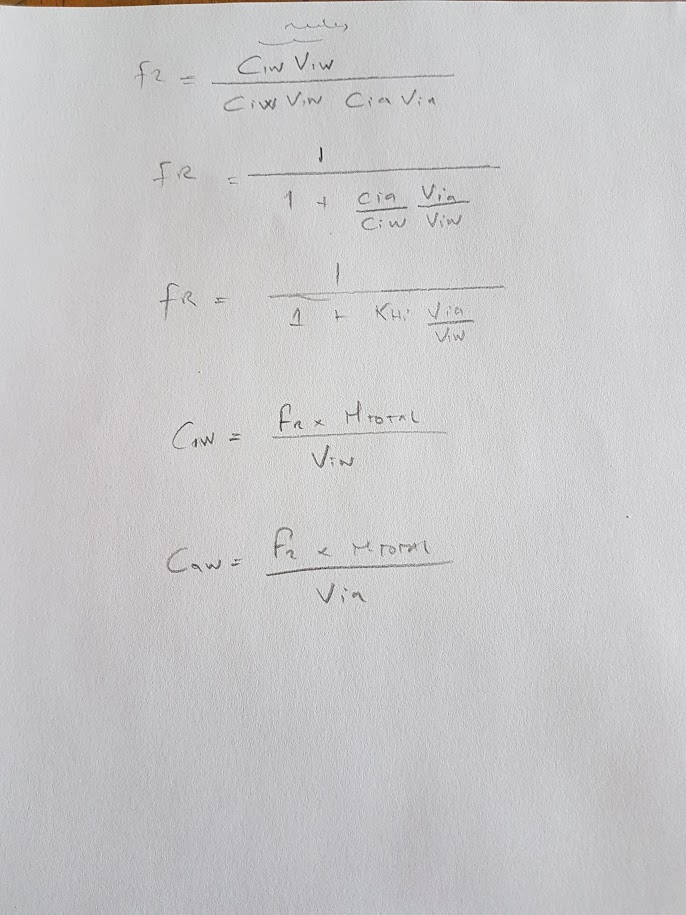 moles
f2 = CiW ViW / CiW ViW Cia Via
fR = 1 / 1 + Cia/CiW Via/ViW
fR = 1 / 1 + KHi Via/ViW
CiW = fR x MTOTAL / ViW
CaW = f2 x MTOTAL / Via